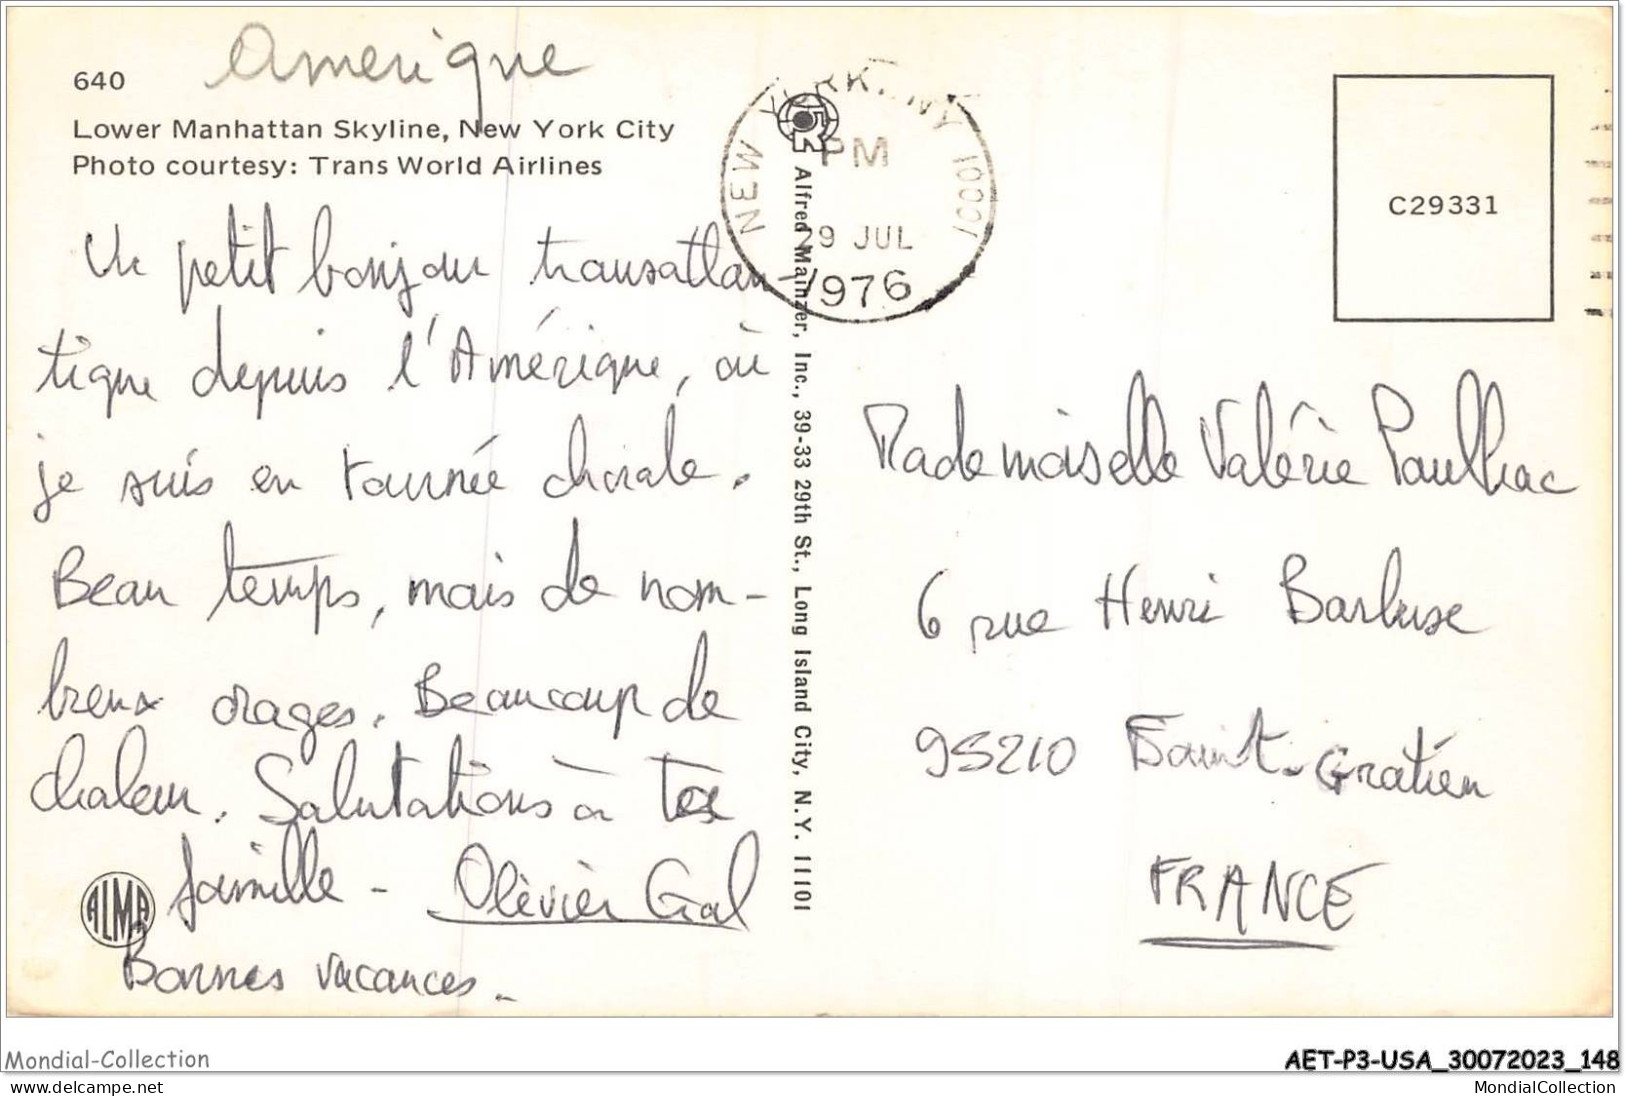 Amerique
640
Lower Manhattan Skyline, New York City
Photo courtesy: Trans World Airlines
Un petit bonjour transatlan-
tique depuis l'Amérique, où
je suis en tournée chorale.
Beau temps, mais de nom-
breux orages. Beaucoup de
chaleur. Salutations à ta
famille - Olivier Gal
Bonnes vacances.
ALMA
NEW YORK, NY 10001
PM
29 JUL
1976
Alfred Mainzer, Inc., 39-33 29th St., Long Island City, N.Y. 11101
C29331
Mademoiselle Valérie Paulhac
6 rue Henri Barbusse
95210 Saint-Gratien
FRANCE
Mondial-Collection
AET-P3-USA_30072023_148
www.delcampe.net
MondialCollection